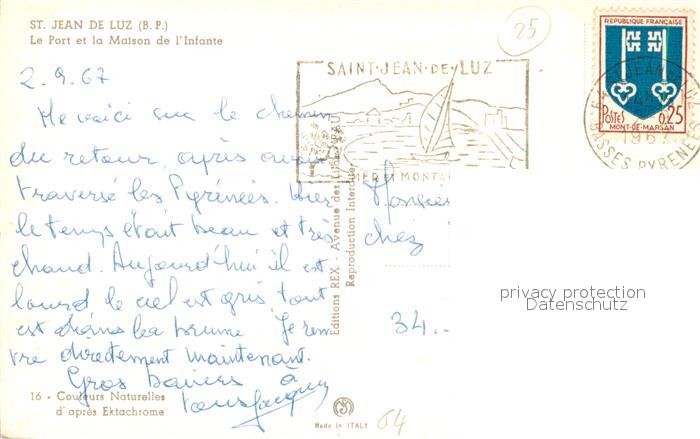 ST. JEAN DE LUZ (B. P.)
Le Port et la Maison de l'Infante
25
2.9.67
Me voici sur le chemin
du retour, après avoir
traversé les Pyrénées. Hier
le temps était beau et très
chaud. Aujourd'hui il est
lourd le ciel est gris tout
est dans la brume. Je
directement maintenant.
Gros baisers à
tous Jacques
16 - Couleurs Naturelles
d'après Ektachrome
SAINT-JEAN-DE-LUZ
MER ET MONTA
Editions REX - Avenue des
Reproduction Interdite
Made in ITALY
64
REPUBLIQUE FRANÇAISE
POSTES 0,25
MONT-DE-MARSAN
JEAN
1967
BASSES PYRENE
chez
34.
privacy protection
Datenschutz